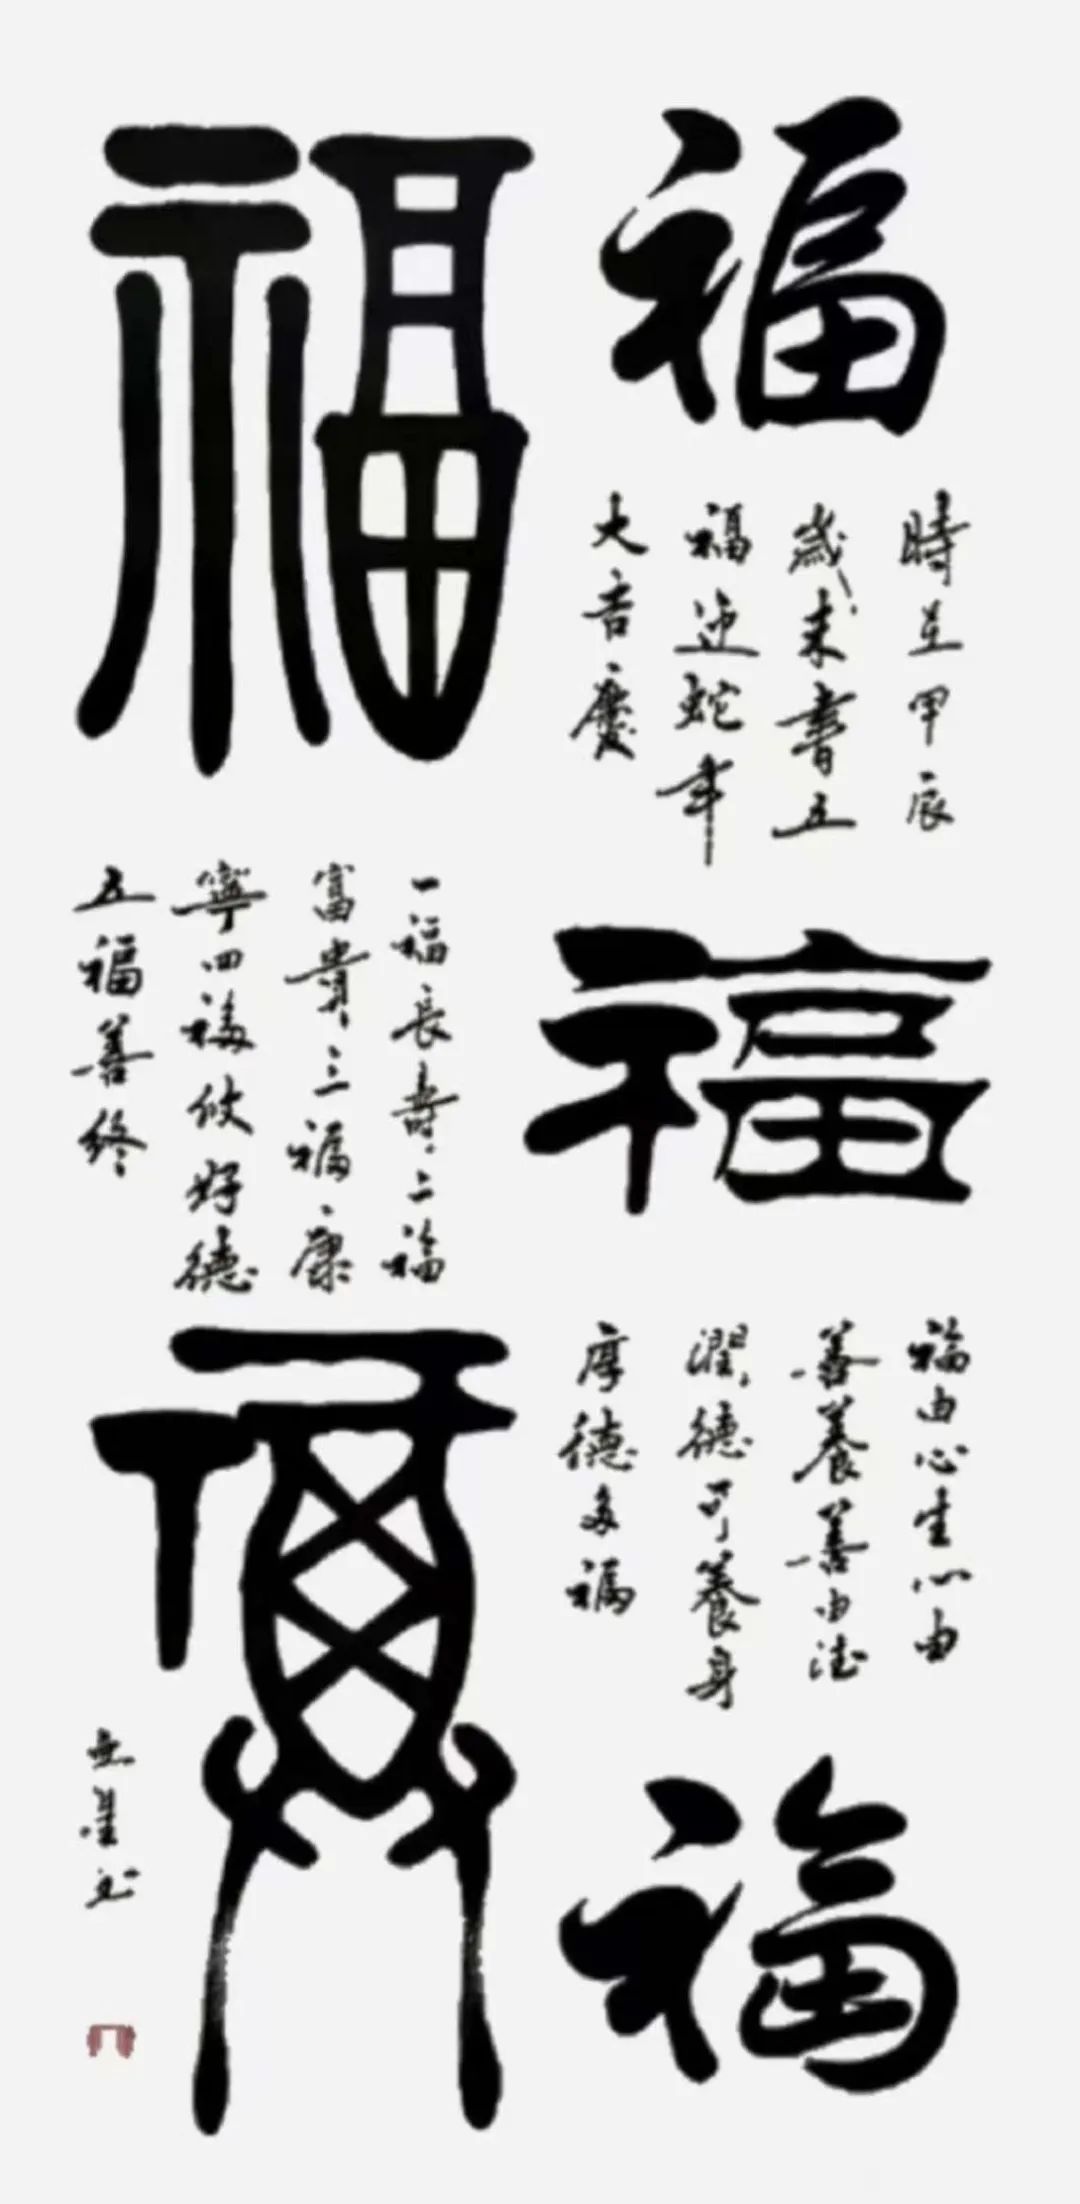 福
時在甲辰
歲末書五
福迎蛇年
大吉慶
福
福由心生心由
善養善由德
潤德可養身
厚德多福
福
福
一福長壽二福
富貴三福康
寧四福攸好德
五福善終
福
书